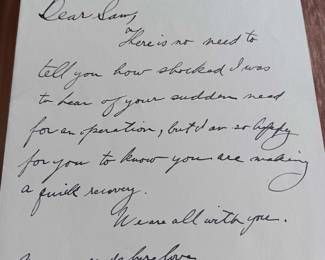 Dear Sam,
There is no need to
tell you how shocked I was
to hear of your sudden need
for an operation, but I'm so happy
for you to know you are making
a quick recovery.
We are all with you.
love